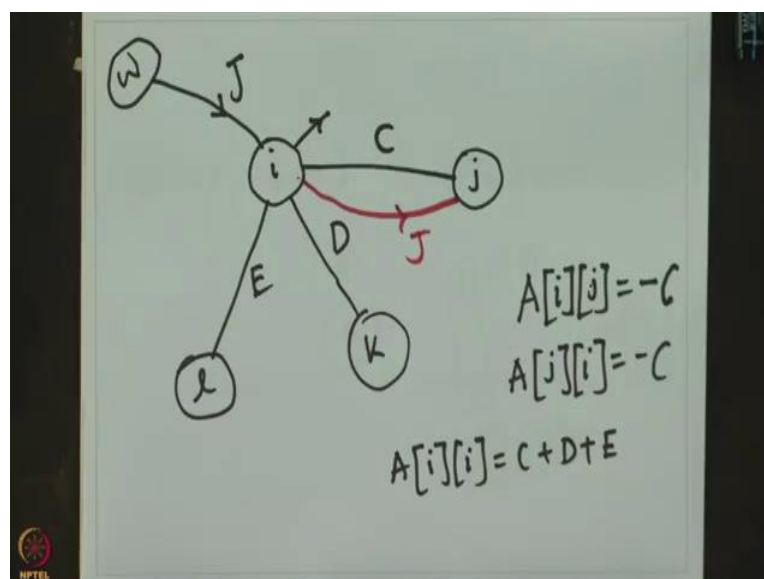 W
J
i
C
j
D
J
E
k
l
A[i][j]=-C
A[j][i]=-C
A[i][i]=C+D+E
NPTEL